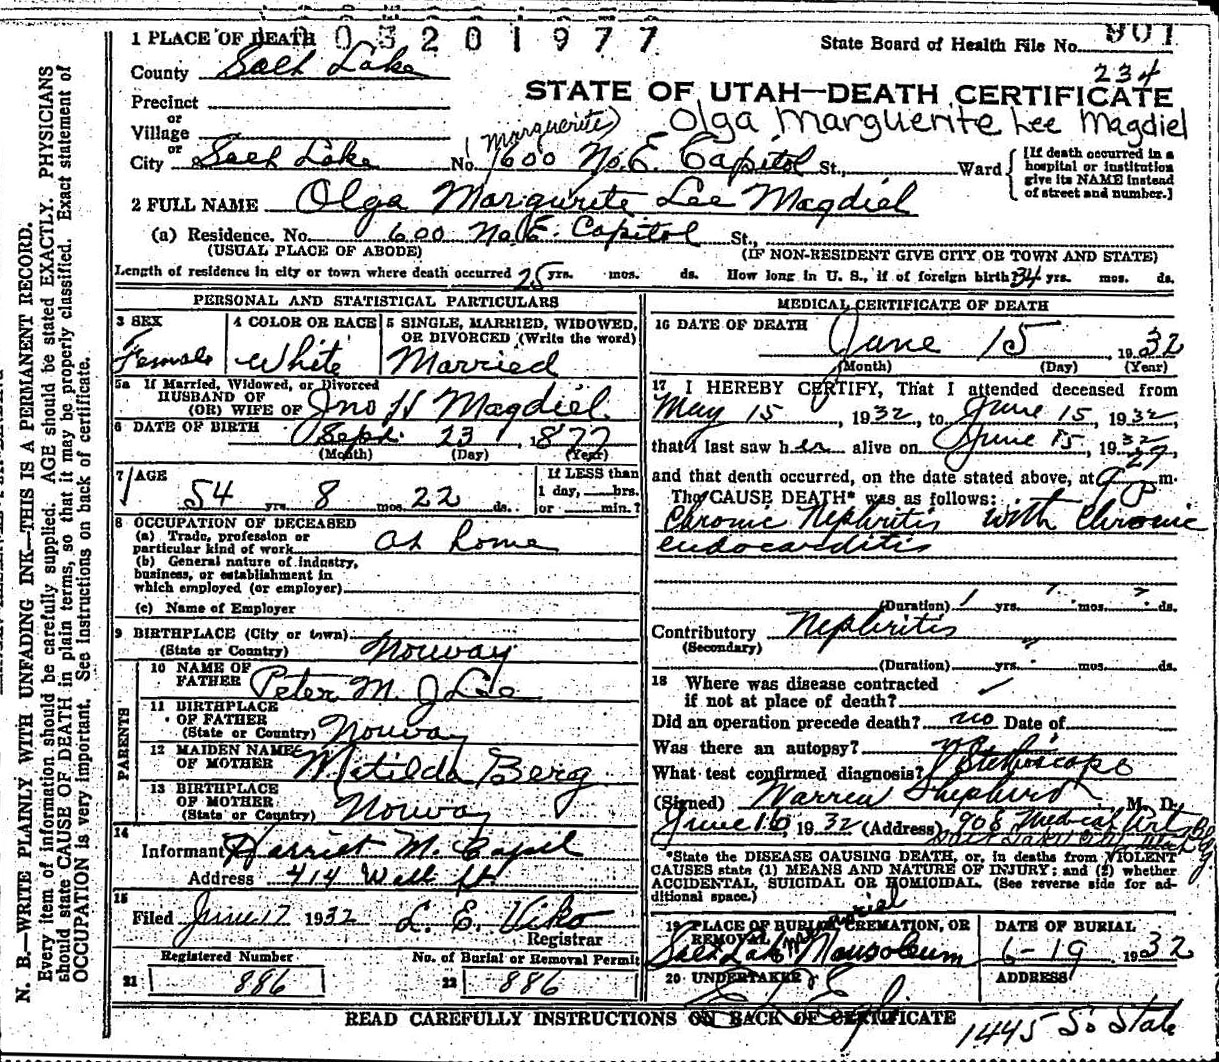 0 0 3 2 0 1 9 7 7
1 PLACE OF DEATH
State Board of Health File No. 901
234
County Salt Lake
STATE OF UTAH—DEATH CERTIFICATE
Precinct
or
Village
or
(Marguerite) Olga Marguerite Lee Magdiel
City Salt Lake No. 600 No. E. Capitol St., Ward
[If death occurred in a hospital or institution give its NAME instead of street and number.]
2 FULL NAME Olga Margurite Lee Magdiel
(a) Residence. No. 600 No E. Capitol St.,
(USUAL PLACE OF ABODE) (IF NON-RESIDENT GIVE CITY OR TOWN AND STATE)
Length of residence in city or town where death occurred 25 yrs. mos. ds. How long in U. S., if of foreign birth? 34 yrs. mos. ds.
PERSONAL AND STATISTICAL PARTICULARS
3 SEX Female
4 COLOR OR RACE White
5 SINGLE, MARRIED, WIDOWED, OR DIVORCED (Write the word) Married
5a If Married, Widowed, or Divorced
HUSBAND OF
(OR) WIFE OF Jno H Magdiel
6 DATE OF BIRTH Sept. 23, 1877
(Month) (Day) (Year)
7 AGE 54 yrs. 8 mos. 22 ds.
If LESS than
1 day, hrs.
or min.?
8 OCCUPATION OF DECEASED
(a) Trade, profession or
particular kind of work At home
(b) General nature of industry,
business, or establishment in
which employed (or employer)
(c) Name of Employer
9 BIRTHPLACE (City or town)
(State or Country) Norway
PARENTS
10 NAME OF
FATHER Peter M. J Lee
11 BIRTHPLACE
OF FATHER
(State or Country) Norway
12 MAIDEN NAME
OF MOTHER Matilda Berg
13 BIRTHPLACE
OF MOTHER
(State or Country) Norway
14
Informant Harriet M.
Address 414 Wall St
15
Filed June 17 1932 L. E. Viko
Registrar
Registered Number
21 886
No. of Burial or Removal Permit
22 886
MEDICAL CERTIFICATE OF DEATH
16 DATE OF DEATH June 15, 1932
(Month) (Day) (Year)
17 I HEREBY CERTIFY, That I attended deceased from
May 15, 1932, to June 15, 1932,
that I last saw her alive on June 15, 1932,
and that death occurred, on the date stated above, at 9 29 p m.
The CAUSE DEATH* was as follows:
Chronic Nephritis with Chronic
endocarditis
(Duration) 1 yrs. ? mos. ? ds.
Contributory Nephritis
(Secondary)
(Duration) yrs. mos. ds.
18 Where was disease contracted
if not at place of death?
Did an operation precede death? no Date of
Was there an autopsy? No
What test confirmed diagnosis? Stethoscope
(Signed) Warren Shepherd M. D.
June 16, 1932 (Address) 908 Medical Arts Bldg
Salt Lake City Utah
*State the DISEASE CAUSING DEATH, or, in deaths from VIOLENT
CAUSES state (1) MEANS AND NATURE OF INJURY; and (2) whether
ACCIDENTAL, SUICIDAL OR HOMICIDAL. (See reverse side for ad-
ditional space.)
19 PLACE OF BURIAL, CREMATION, OR
REMOVAL
Salt Lake Memorial Mausoleum
DATE OF BURIAL
6-19 1932
20 UNDERTAKER
ADDRESS
1445 So State
READ CAREFULLY INSTRUCTIONS ON BACK OF CERTIFICATE
N. B.—WRITE PLAINLY WITH UNFADING INK—THIS IS A PERMANENT RECORD.
Every item of information should be carefully supplied. AGE should be stated EXACTLY. PHYSICIANS
should state CAUSE OF DEATH in plain terms, so that it may be properly classified. Exact statement of
OCCUPATION is very important. See Instructions on back of certificate.